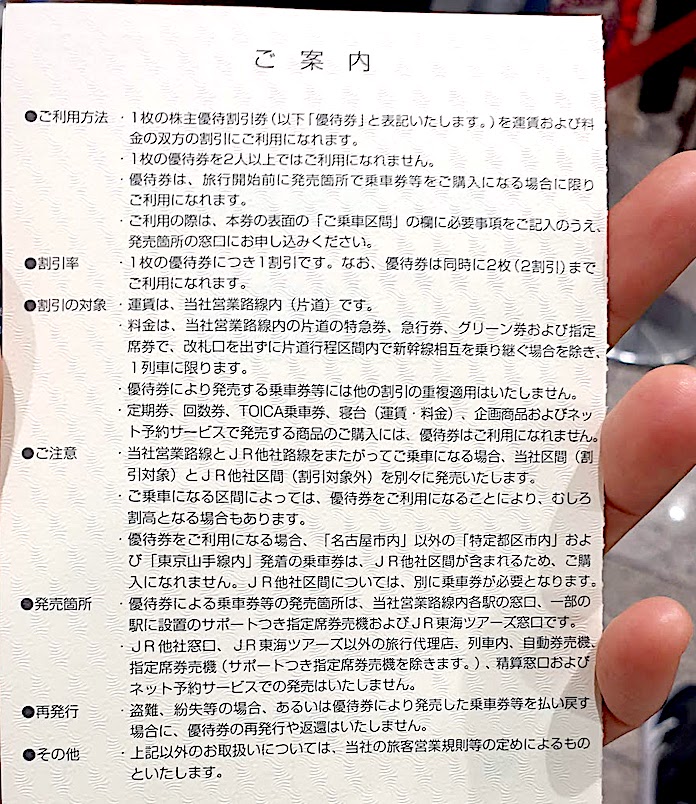 ご案内
●ご利用方法 ・1枚の株主優待割引券(以下「優待券」と表記いたします。)を運賃および料
金の双方の割引にご利用になれます。
・1枚の優待券を2人以上ではご利用になれません。
・優待券は、旅行開始前に発売箇所で乗車券等をご購入になる場合に限り
ご利用になれます。
・ご利用の際は、本券の表面の「ご乗車区間」の欄に必要事項をご記入のうえ、
発売箇所の窓口にお申し込みください。
●割引率 ・1枚の優待券につき1割引です。なお、優待券は同時に2枚(2割引)まで
ご利用になれます。
●割引の対象 ・運賃は、当社営業路線内(片道)です。
・料金は、当社営業路線内の片道の特急券、急行券、グリーン券および指定
席券で、改札口を出ずに片道行程区間内で新幹線相互を乗り継ぐ場合を除き、
1列車に限ります。
・優待券により発売する乗車券等には他の割引の重複適用はいたしません。
・定期券、回数券、TOICA乗車券、寝台(運賃・料金)、企画商品およびネッ
ト予約サービスで発売する商品のご購入には、優待券はご利用になれません。
●ご注意 ・当社営業路線とJR他社路線をまたがってご乗車になる場合、当社区間(割
引対象)とJR他社区間(割引対象外)を別々に発売いたします。
・ご乗車になる区間によっては、優待券をご利用になることにより、むしろ
割高となる場合もあります。
・優待券をご利用になる場合、「名古屋市内」以外の「特定都区市内」およ
び「東京山手線内」発着の乗車券は、JR他社区間が含まれるため、ご購
入になれません。JR他社区間については、別に乗車券が必要となります。
●発売箇所 ・優待券による乗車券等の発売箇所は、当社営業路線内各駅の窓口、一部の
駅に設置のサポートつき指定席券売機およびJR東海ツアーズ窓口です。
・JR他社窓口、JR東海ツアーズ以外の旅行代理店、列車内、自動券売機、
指定席券売機(サポートつき指定席券売機を除きます。)、精算窓口および
ネット予約サービスでの発売はいたしません。
●再発行 ・盗難、紛失等の場合、あるいは優待券により発売した乗車券等を払い戻す
場合に、優待券の再発行や返還はいたしません。
●その他 ・上記以外のお取扱いについては、当社の旅客営業規則等の定めによるもの
といたします。